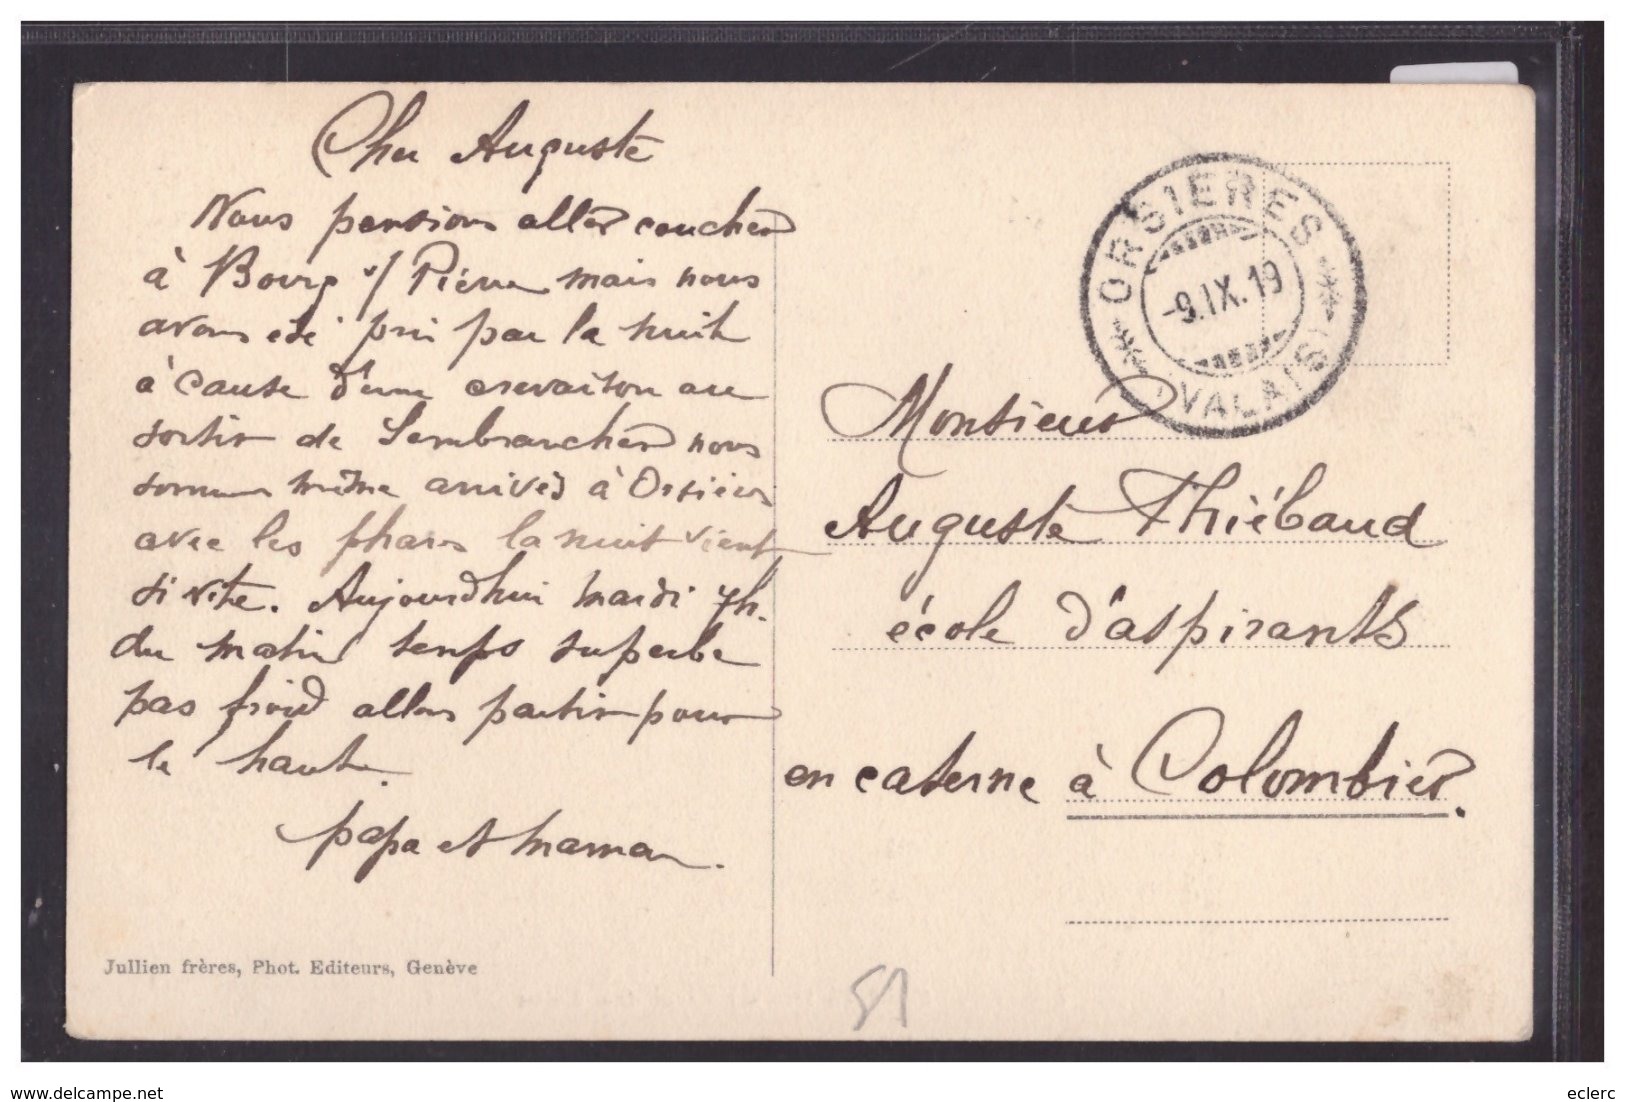 Cher Auguste
Nous pensions aller coucher
à Bourg s/ Pierre mais nous
avons été pris par la nuit
à cause d'une crevaison au
sortir de Sembrancher nous
sommes même arrivés à Orsières
avec les phares la nuit vient
si vite. Aujourdhui mardi 7h.
du matin temps superbe
pas froid allons partir pour
le haut.
papa et maman.
Jullien frères, Phot. Editeurs, Genève
ORSIERES
-9.IX.19
(VALAIS)
Monsieur
Auguste Thiébaud
école d'aspirants
en caserne à Colombier.
51
www.delcampe.net
eclerc